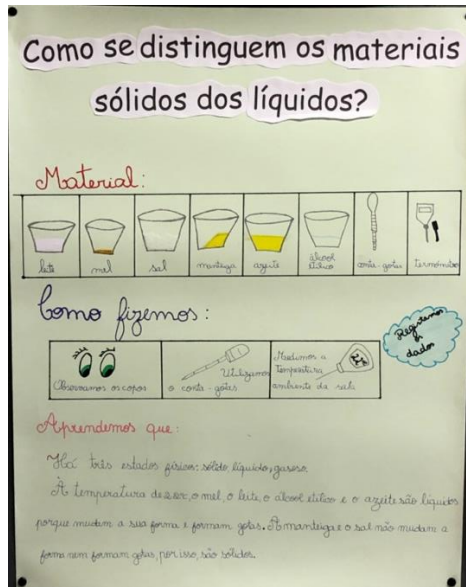 Como se distinguem os materiais
sólidos dos líquidos?
Material:
leite
mel
sal
manteiga
azeite
álcool
etílico
conta-gotas
termómetro
Como fizemos:
Registamos
os
dados
Observamos os copos
Utilizamos
o conta-gotas
Medimos a
temperatura
ambiente da sala
Aprendemos que:
Há três estados físicos: sólido, líquido, gasoso.
À temperatura de, o mel, o leite, o álcool etílico e o azeite são líquidos
porque mudam a sua forma e formam gotas. A manteiga e o sal não mudam a
forma nem formam gotas, por isso, são sólidos.